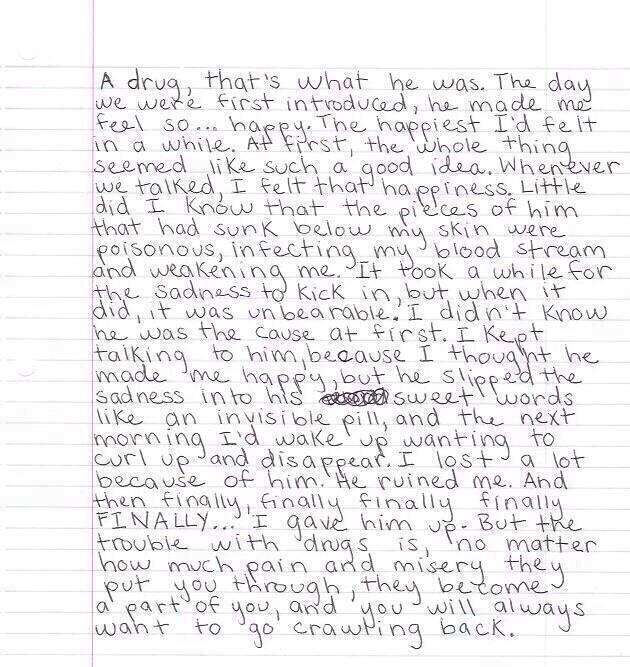 A drug, that's what he was. The day
we were first introduced, he made me
feel so... happy. The happiest I'd felt
in a while. At first, the whole thing
seemed like such a good idea. Whenever
we talked, I felt that happiness. Little
did I know that the pieces of him
that had sunk below my skin were
poisonous, infecting my blood stream
and weakening me. It took a while for
the sadness to kick in, but when it
did, it was unbearable. I didn't know
he was the cause at first. I kept
talking to him, because I thought he
made me happy, but he slipped the
sadness into his sweet words
like an invisible pill, and the next
morning I'd wake up wanting to
curl up and disappear. I lost a lot
because of him. He ruined me. And
then finally, finally finally finally
FINALLY... I gave him up. But the
trouble with drugs is, no matter
how much pain and misery they
put you through, they become
a part of you, and you will always
want to go crawling back.